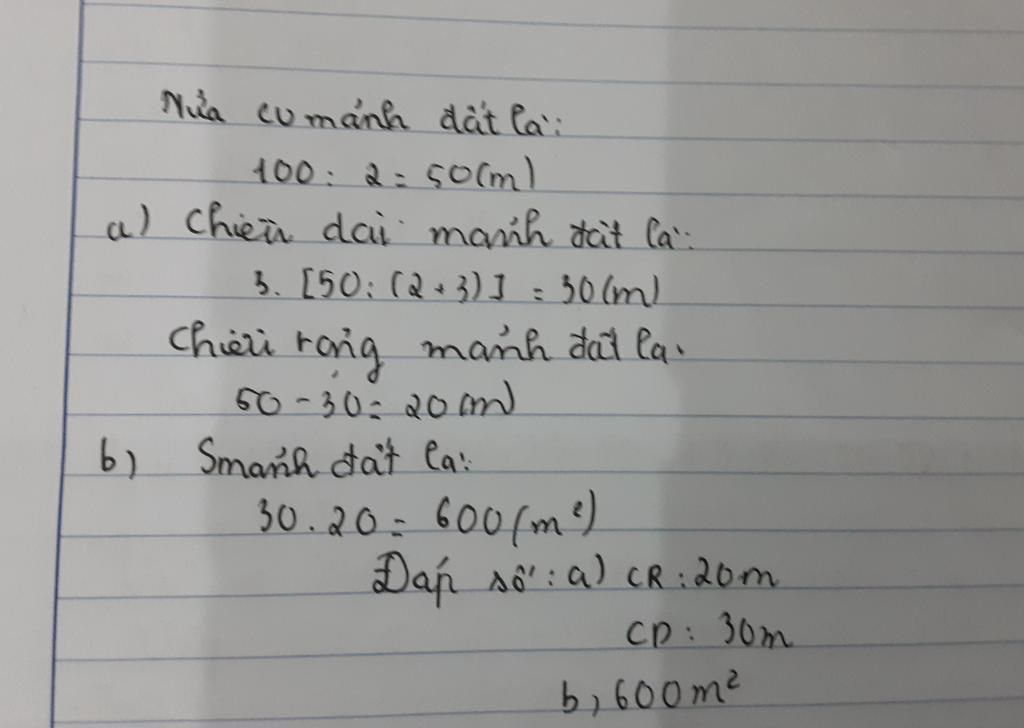 Nửa cv mảnh đất là:
100 : 2 = 50(m)
a) Chiều dài mảnh đất là:
3. [50 : (2+3)] = 30(m)
Chiều rộng mảnh đất là:
50 - 30 = 20(m)
b) Smảnh đất là:
30 . 20 = 600(m²)
Đáp số : a) CR : 20m
CD : 30m
b, 600m²